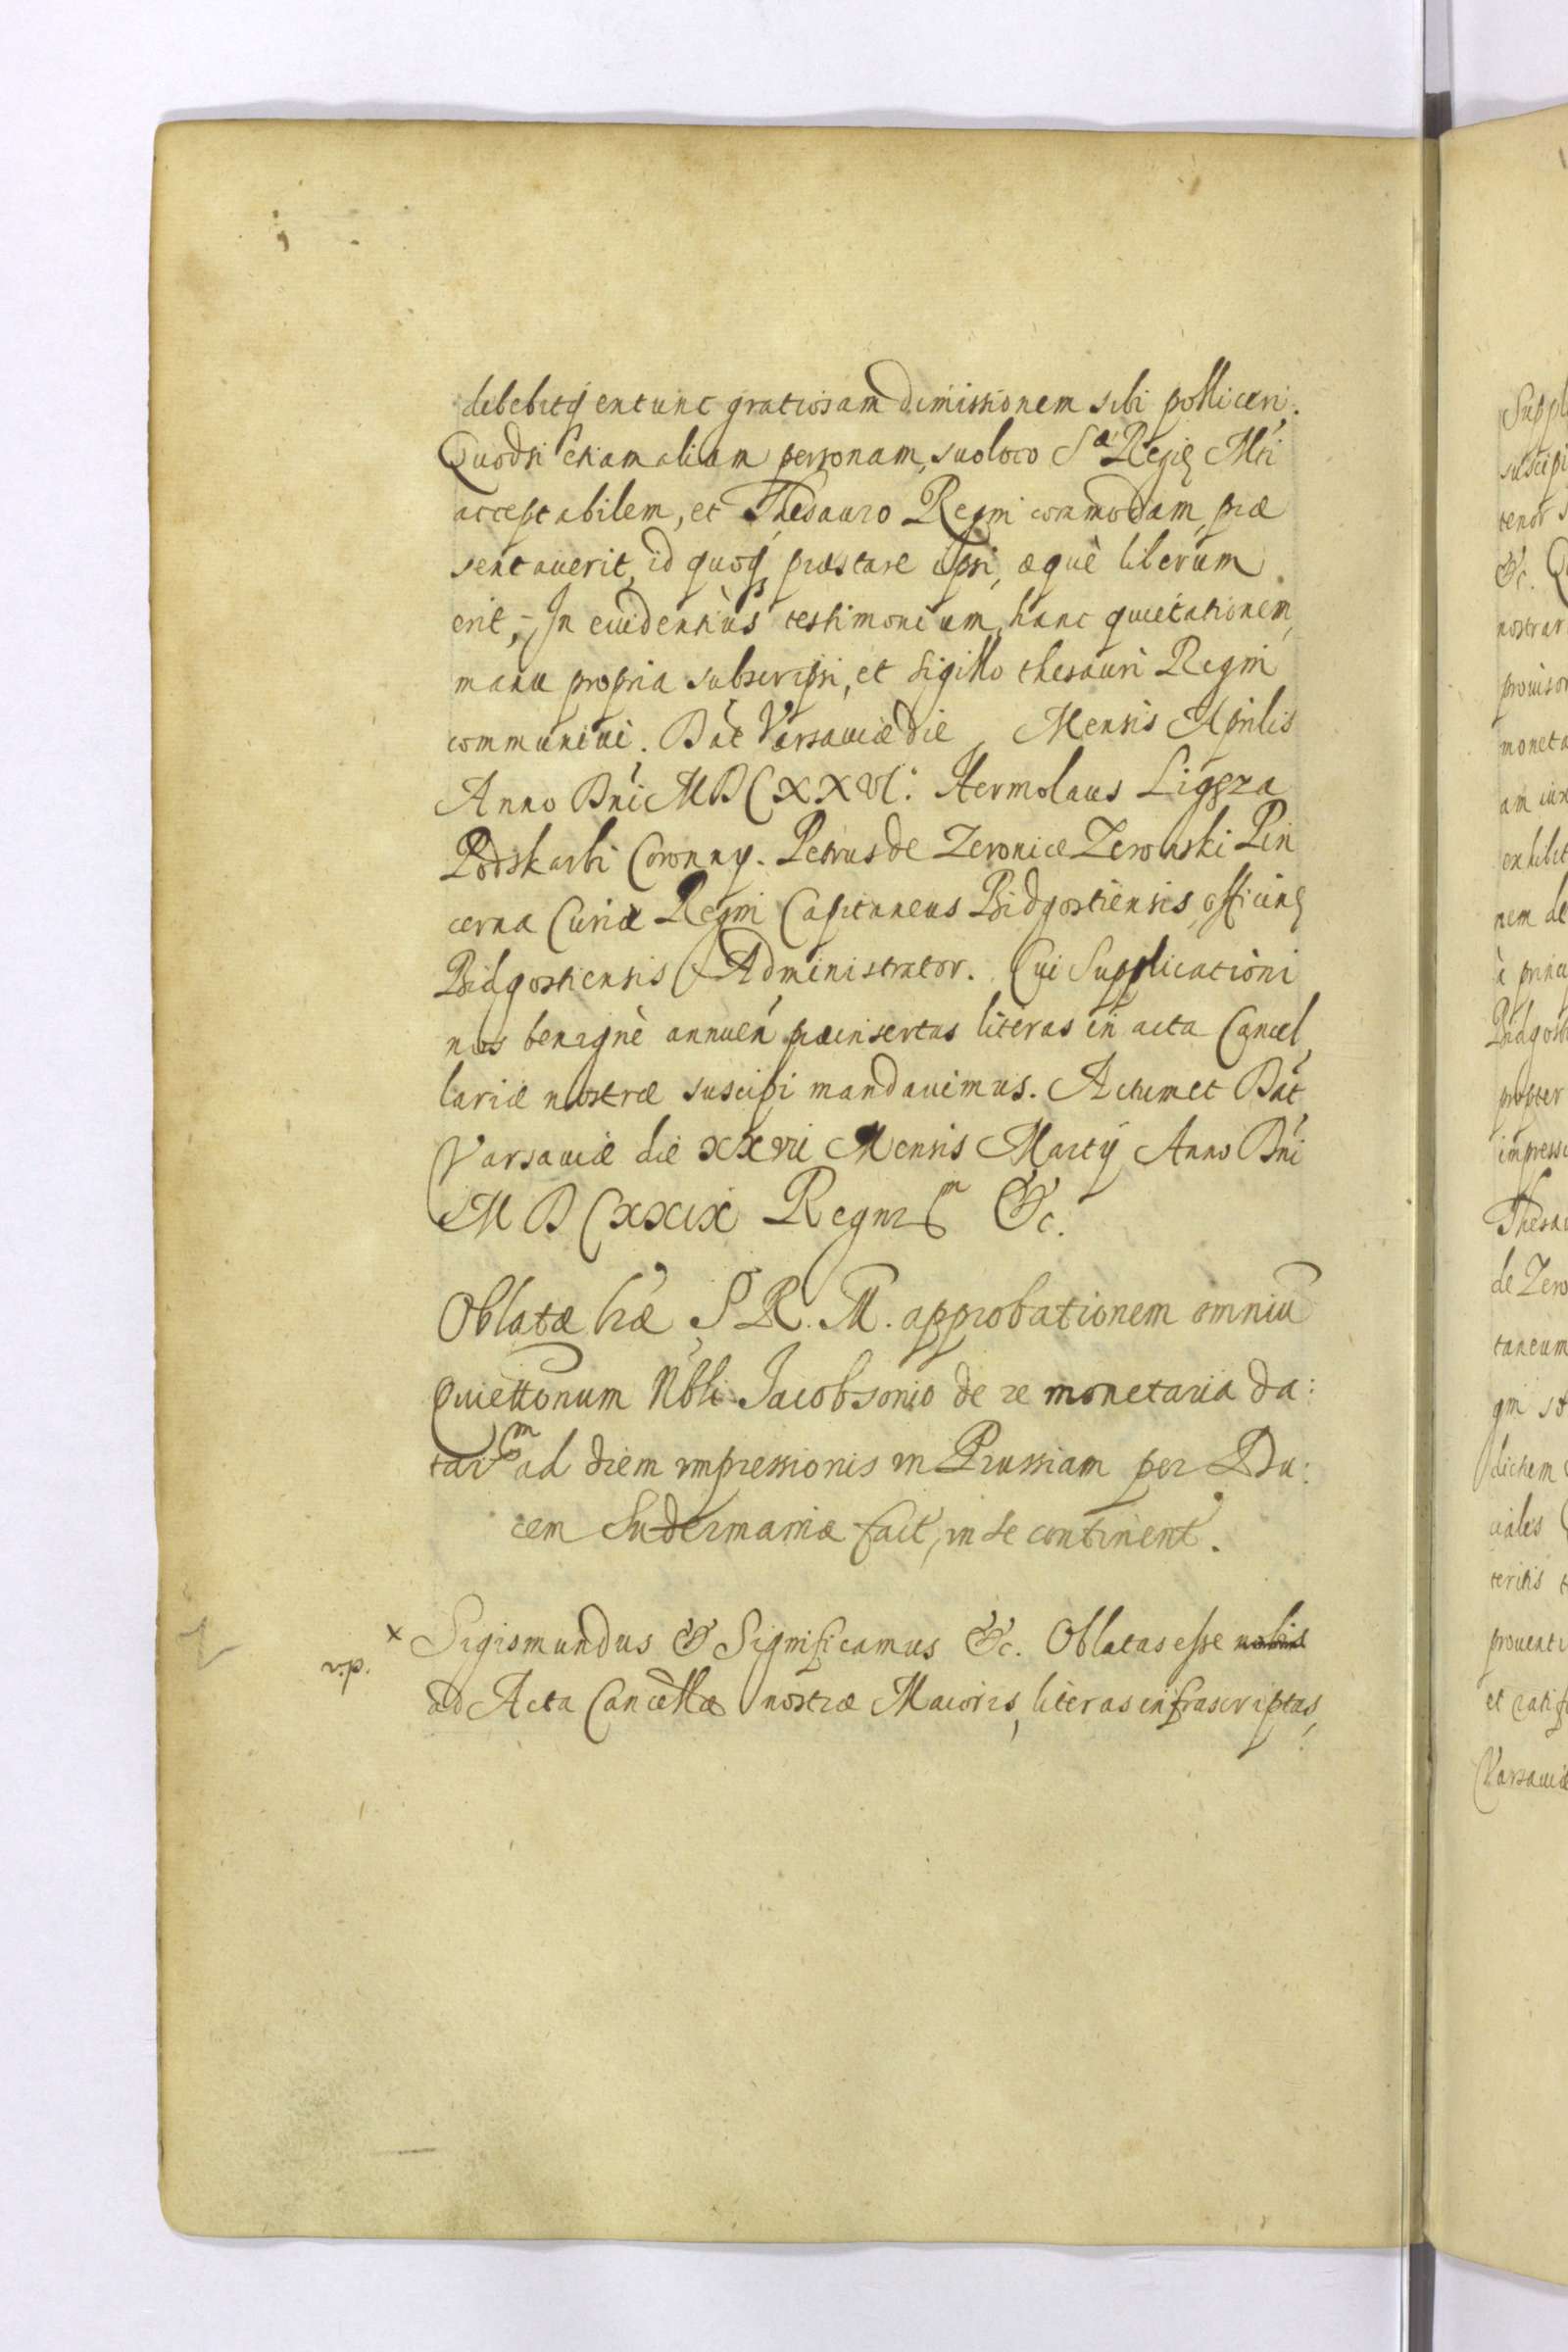 debebitq₃ extunc gratiosam dimissionem sibi polliceri.
Quodsi etiam aliam personam, suo loco Sæ Regię Mti
acceptabilem, et Thesauro Regni commodam præ
sentauerit, id quoq₃ præstare ipsi, æquè liberum
erit, In euidentiùs testimonium, hanc quietationem,
manu propria subscripsi, et sigillo thesauri Regni
communiui. Dat Varsauiæ die Mensis Aprilis
Anno Dni MDCXXVI. Hermolaus Ligęza
Podskarbi Coronny. Petrus de Zeronice Zeronski Pin
cerna Curiæ Regni Capitaneus Bidgostiensis, officinę
Bidgostiensis Administrator. Cui Supplicationi
nos benignè annuen præinsertas literas in acta Cancel
lariæ nostræ suscipi mandauimus. Actum et Dat
Varsauiæ die XXVII Mensis Martij Anno Dni
MDCXXIX Regnor^m &c.
Oblatæ lræ S. R. M. approbationem omniu
Quiettonum Nbli Jacobsonio de re monetaria da:
tar^m ad diem impressionis in Prussiam per Du:
cem Sudermaniæ fact, in se continent.
x Sigismundus & Significamus &c. Oblatas esse nobis
ad Acta Cancellæ nostræ Maioris, literas infrascriptas,
Suppli
suscipi
tenor
&c. Q
nostrar
prouisor
moneta
am iux
exhibit
nem de
à princi
Bidgosti
propter
impressi
Thesau
de Zero
taneum
gni
dictem
ciales
teritis
prouenti
et ratif
Varsauiæ